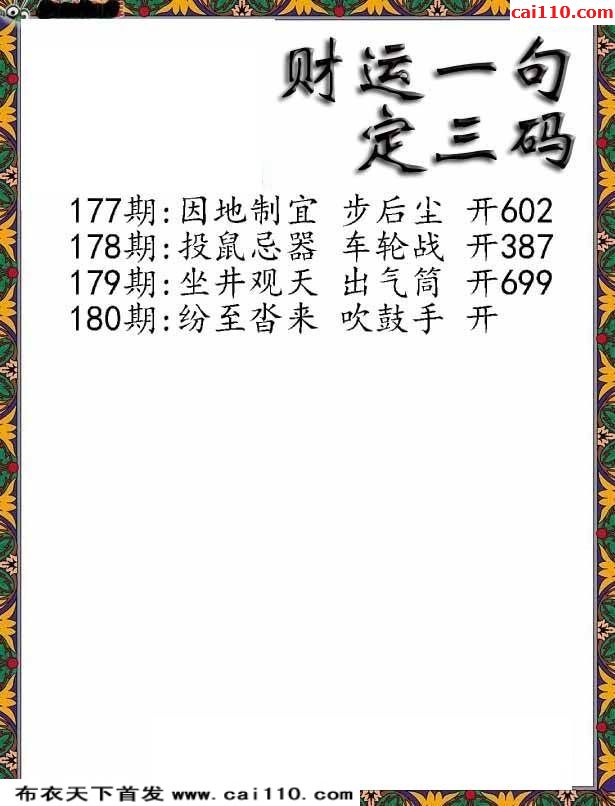 cai110.com
财运一句
定三码
177期:因地制宜 步后尘 开602
178期:投鼠忌器 车轮战 开387
179期:坐井观天 出气筒 开699
180期:纷至沓来 吹鼓手 开
布衣天下首发 www.cai110.com